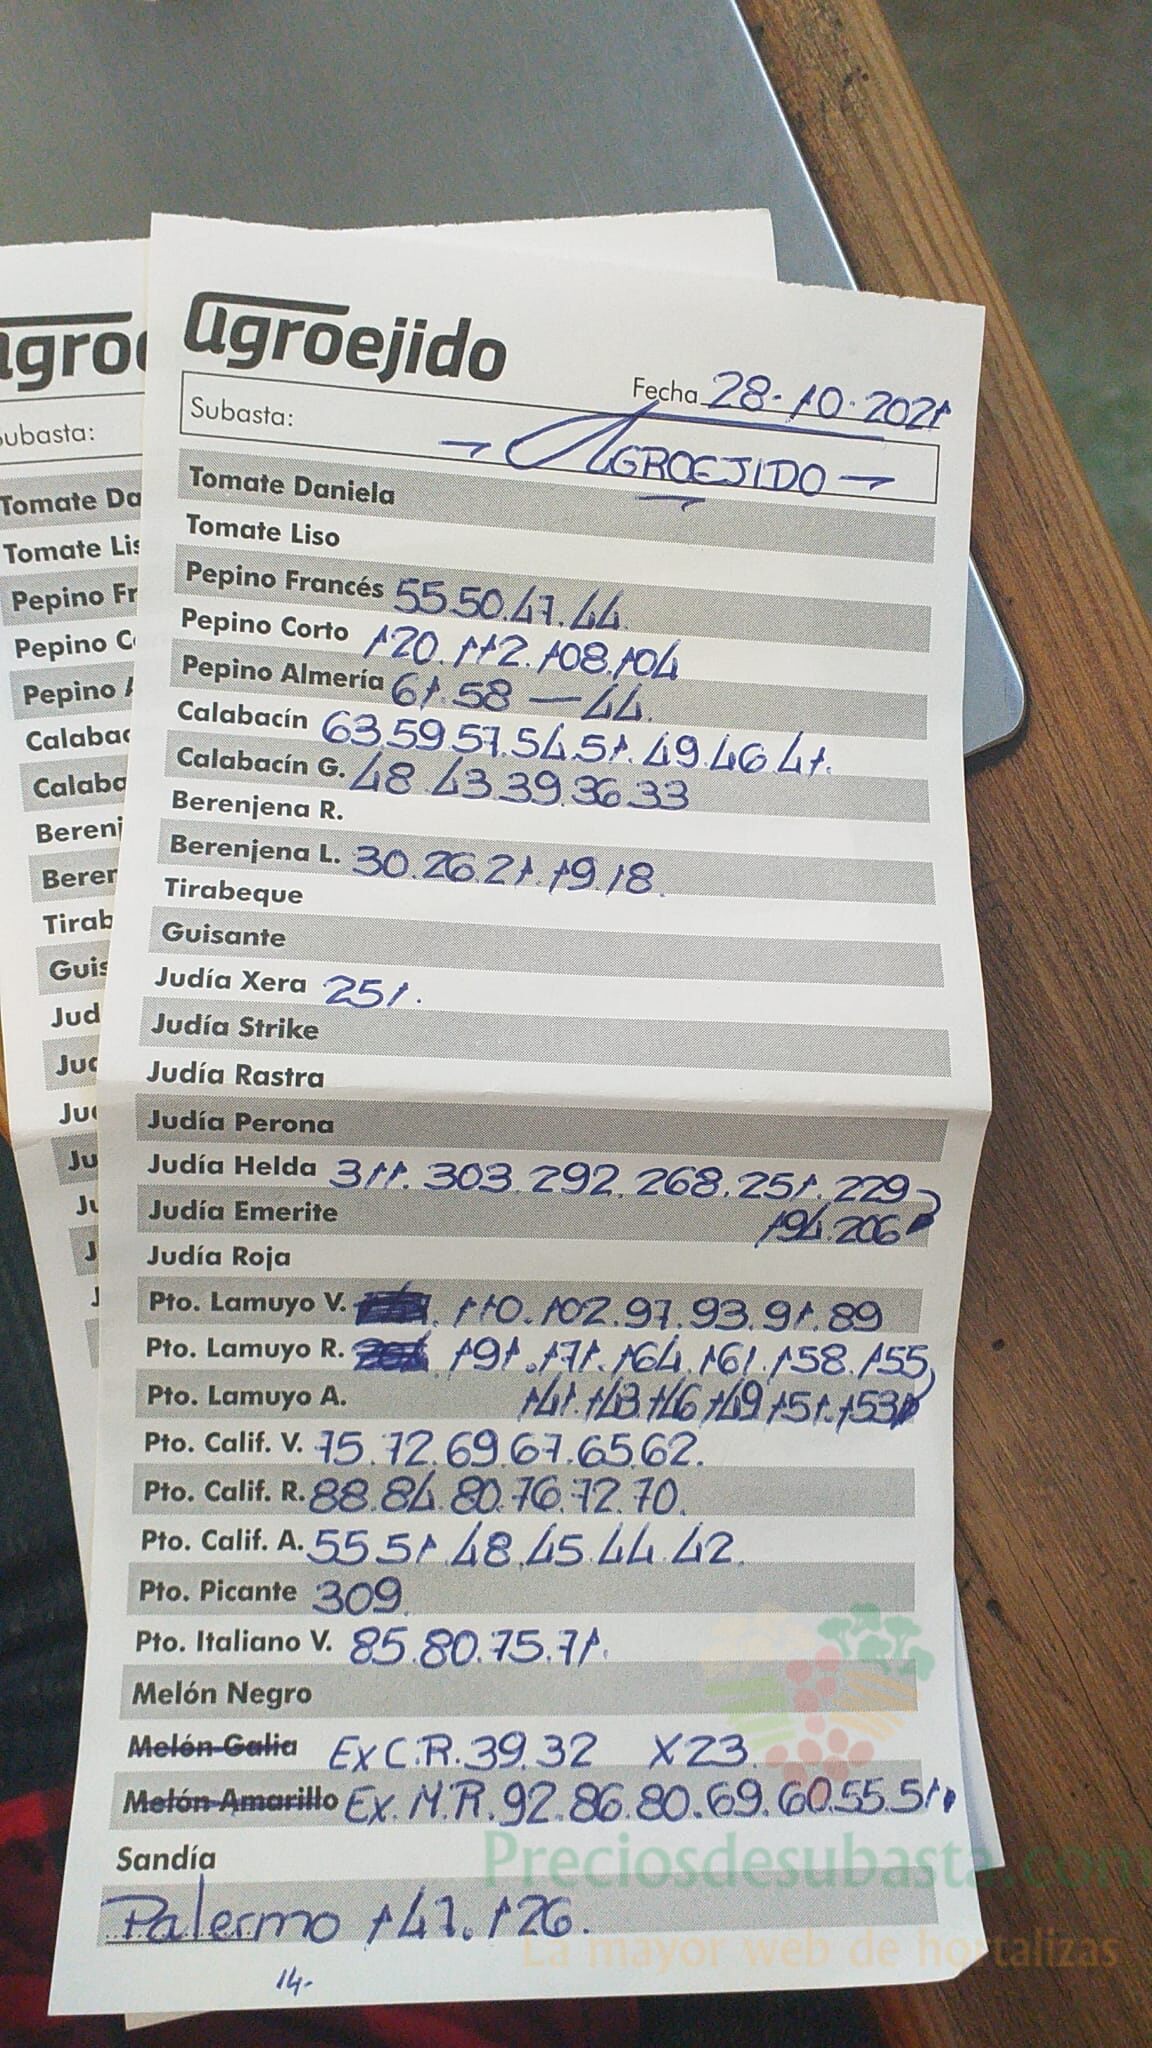 agroejido
Fecha 28-10-2021
Subasta: → AGROEJIDO →
Tomate Daniela
Tomate Liso
Pepino Francés 55.50.47.44.
Pepino Corto 120.112.108.104
Pepino Almería 61.58 — 44.
Calabacín 63.59.57.54.51.49.46.41.
Calabacín G. 48.43.39.36.33
Berenjena R.
Berenjena L. 30.26.21.19.18.
Tirabeque
Guisante
Judía Xera 251.
Judía Strike
Judía Rastra
Judía Perona
Judía Helda 311.303.292.268.251.229
Judía Emerite 194.206
Judía Roja
Pto. Lamuyo V. 110.102.97.93.91.89
Pto. Lamuyo R. 191.171.164.161.158.155
Pto. Lamuyo A. 141.143.146.149.151.153
Pto. Calif. V. 75.72.69.67.65.62.
Pto. Calif. R. 88.84.80.76.72.70.
Pto. Calif. A. 55.51.48.45.44.42.
Pto. Picante 309.
Pto. Italiano V. 85.80.75.71.
Melón Negro
Melón Galia Ex C.R.39.32 X23.
Melón Amarillo Ex.M.R.92.86.80.69.60.55.51
Sandía
Palermo 147.126.
14-
agroe
Subasta:
Tomate Da
Tomate Lis
Pepino Fr
Pepino C
Pepino A
Calabac
Calaba
Berenj
Beren
Tirab
Guis
Jud
Jud
Ju
Ju
Ju
J
J
Preciosdesubasta.com
La mayor web de hortalizas